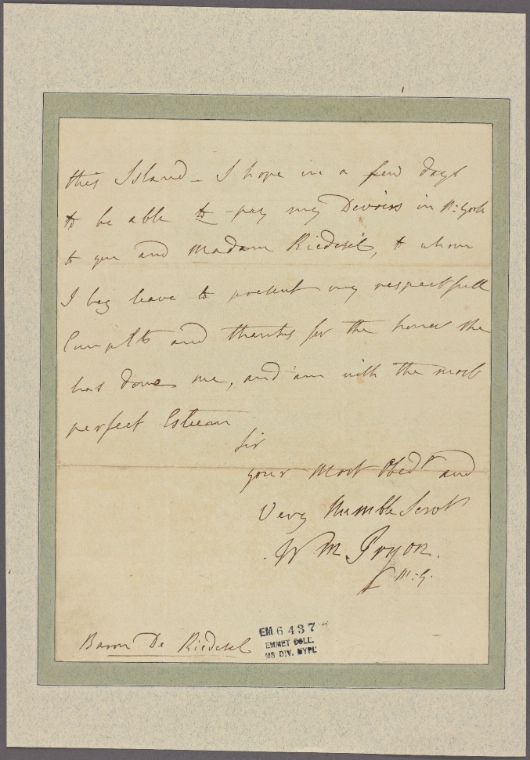 this Island - I hope in a few days
to be able to pay my Devoirs in N: York
to you and Madam Riedesel, to whom
I beg leave to present my respectfull
Complts and thanks for the honor she
has done me, and am with the most
perfect Esteem
Sir
your most Obedt and
Very Humble Servt
Wm Tryon.
M: G.
Baron De Riedesel
EM 6437
EMMET COLL.
MS DIV. NYPL